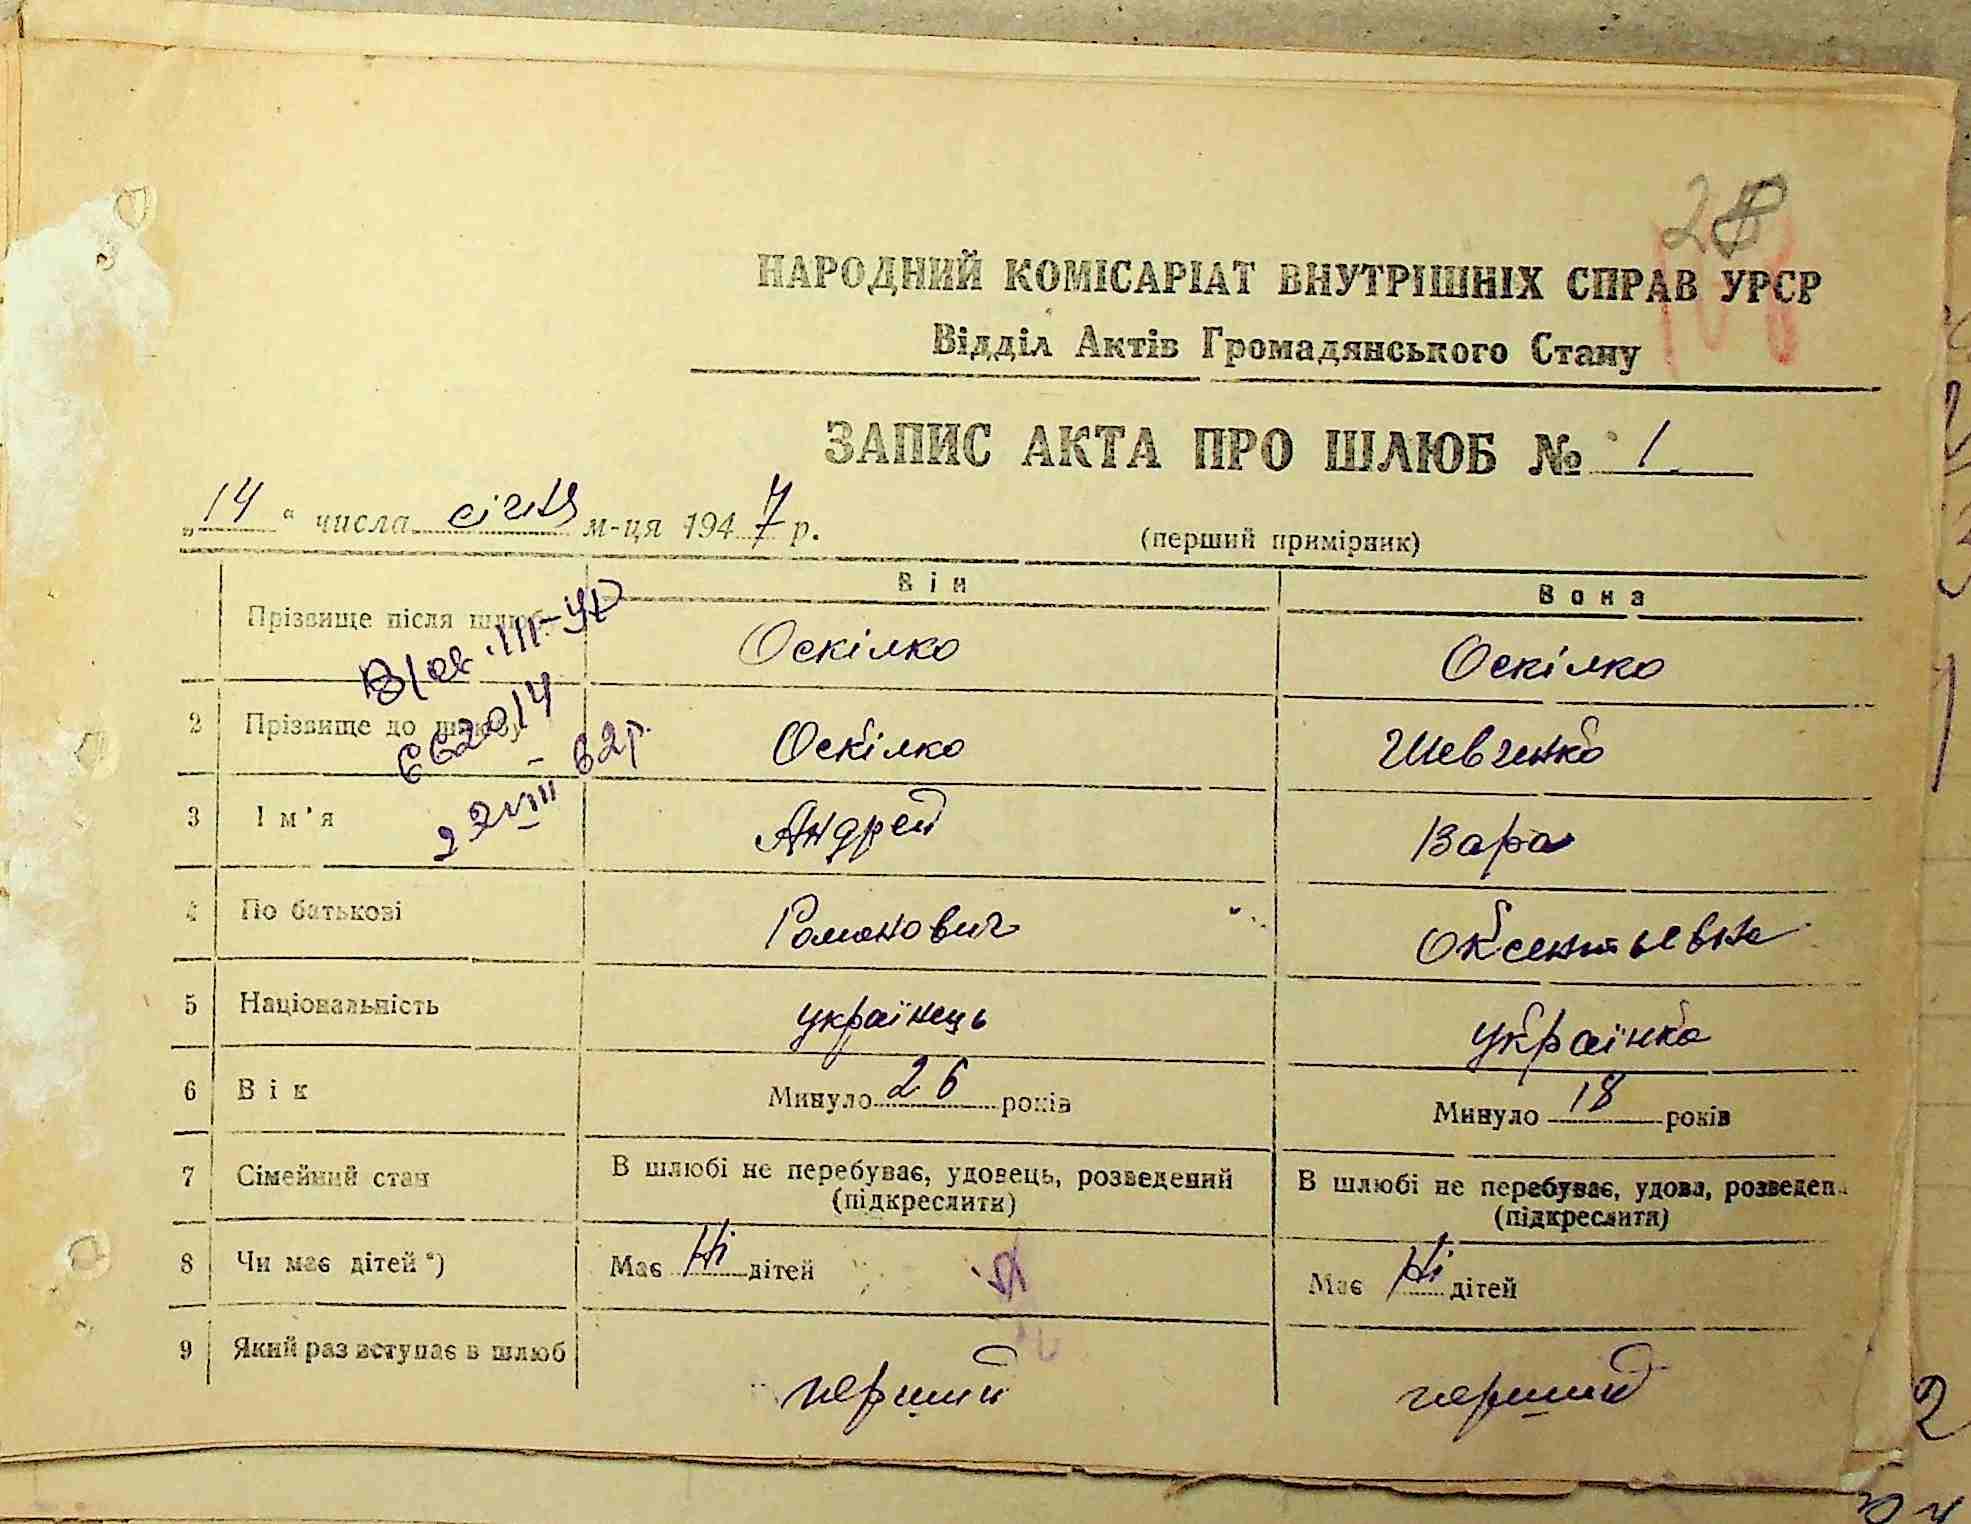 28
НАРОДНИЙ КОМІСАРІАТ ВНУТРІШНІХ СПРАВ УРСР
Відділ Актів Громадянського Стану
ЗАПИС АКТА ПРО ШЛЮБ № 1
„14“ числа січня м-ця 1947 р.
(перший примірник)
Він Вона
Прізвище після шлюбу Оскілко Оскілко
2 Прізвище до шлюбу Оскілко Шевченко
3 Ім'я Андрей Вара
4 По батькові Романович Оксентьевна
5 Національність українець українка
6 Вік Минуло 26 років Минуло 18 років
7 Сімейний стан В шлюбі не перебуває, удовець, розведений (підкреслити) В шлюбі не перебуває, удова, розведен (підкреслити)
8 Чи має дітей*) Має Ні дітей Має Ні дітей
9 Який раз вступає в шлюб перший перший
III-УР
662014
22 VIII 62р.